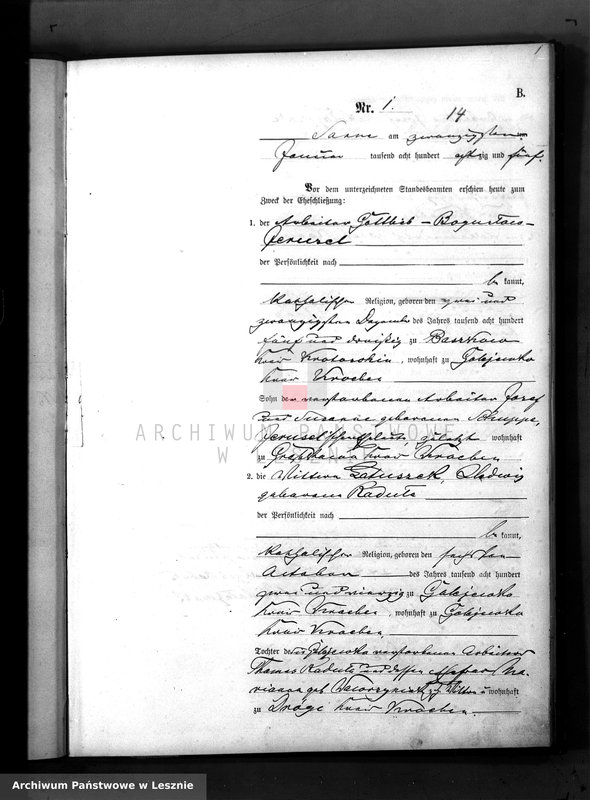 1
B.
Nr. 1. 14
Sarne am zwanzigsten
Januar tausend acht hundert achtzig und fünf.
Vor dem unterzeichneten Standesbeamten erschien heute zum
Zweck der Eheschließung:
1. der Arbeiter Gottlieb - Boguslaw -
der Persönlichkeit nach
be kannt,
katholischer Religion, geboren den zwei und
zwanzigsten Dezember des Jahrs tausend acht hundert
fünf und dreißig zu Baszkow
Kreis Krotoschin, wohnhaft zu Golejewko
Kreis Kroeben
Sohn des verstorbenen Arbeiter Josef
und Susanna geborenen
zuletzt wohnhaft
zu Kreis Kroeben
2. die Wittwe Hedwig
geborene Raduta
der Persönlichkeit nach
be kannt,
katholischer Religion, geboren den
October des Jahrs tausend acht hundert
zwei und vierzig zu Golejewko
Kreis Kroeben, wohnhaft zu Golejewko
Kreis Kroeben
Tochter des zu Golejewko verstorbenen Arbeiter
Thomas Raduta und dessen Ma-
rianna geb. wohnhaft
zu Kreis Kroeben.
ARCHIWUM PAŃSTWOWE
W
Archiwum Państwowe w Lesznie